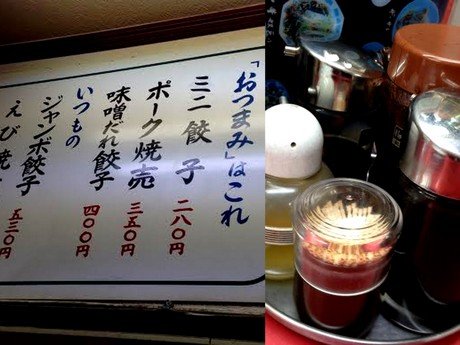 「おつまみ」はこれ
ミニ餃子 二八〇円
ポーク焼売 三五〇円
味噌だれ餃子 四〇〇円
いつもの
ジャンボ餃子 五三〇円
えび焼